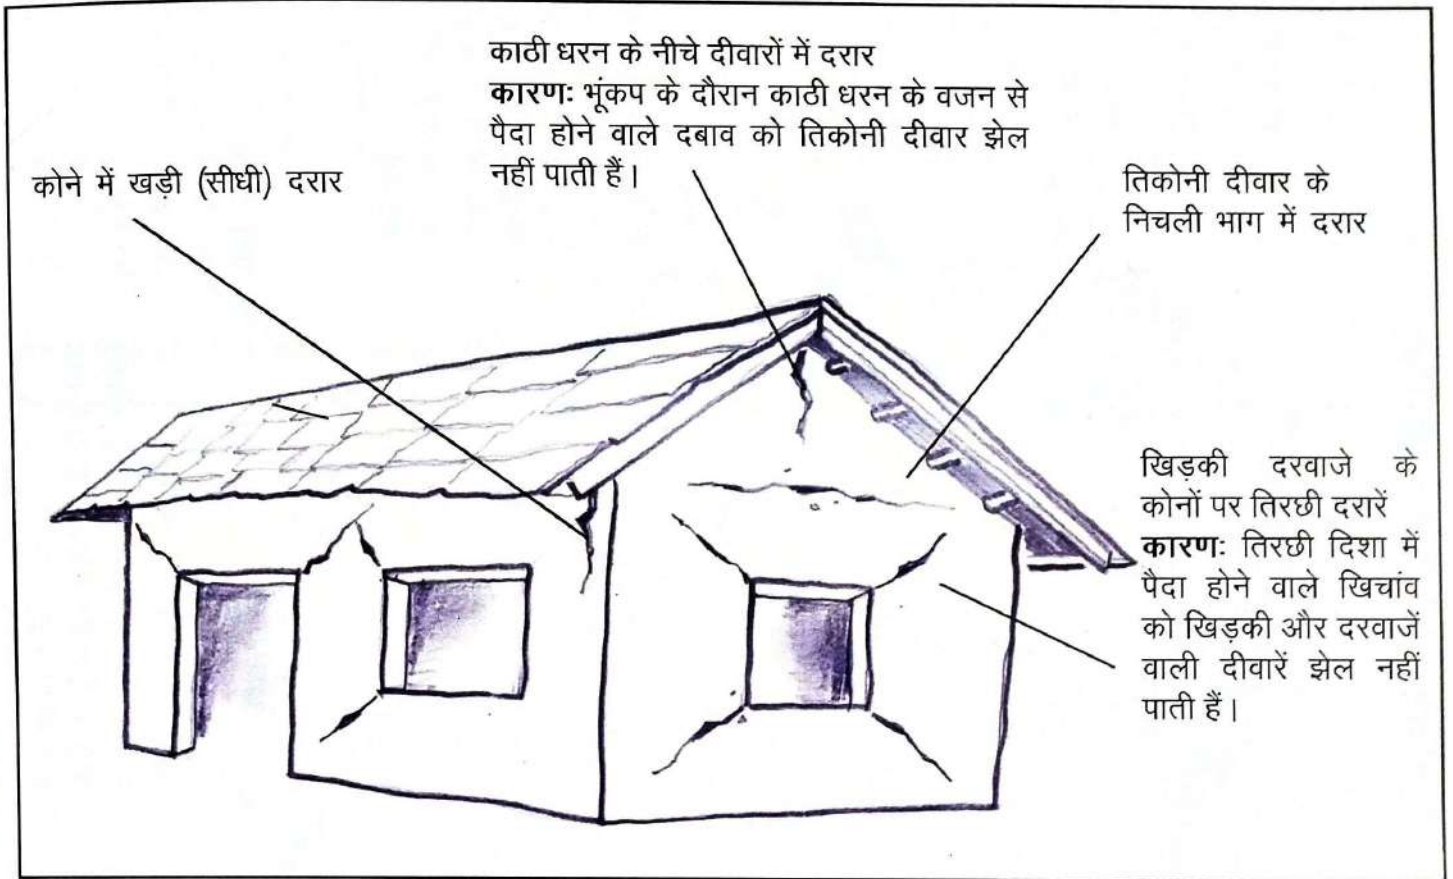 काठी धरन के नीचे दीवारों में दरार
कारणः भूंकप के दौरान काठी धरन के वजन से
पैदा होने वाले दबाव को तिकोनी दीवार झेल
नहीं पाती हैं।
कोने में खड़ी (सीधी) दरार
तिकोनी दीवार के
निचली भाग में दरार
खिड़की दरवाजे के
कोनों पर तिरछी दरारें
कारणः तिरछी दिशा में
पैदा होने वाले खिचांव
को खिड़की और दरवाजें
वाली दीवारें झेल नहीं
पाती हैं।